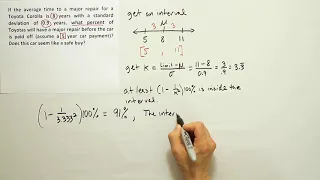 If the average time to a major repair for a
Toyota Corolla is 8 years with a standard
deviation of 0.9 years, what percent of
Toyotas will have a major repair before the
car is paid off (assume a 5 year car payment)?
Does this car seem like a safe buy?
get an interval
3 μ 3
5 8 11
[5 , 11]
get k = limit-μ / σ = 11-8 / 0.9 = 3 / .9 = 3.3
at least (1 - 1/k²)100% is inside the
interval.
(1 - 1/3.333²)100% = 91%, The inter